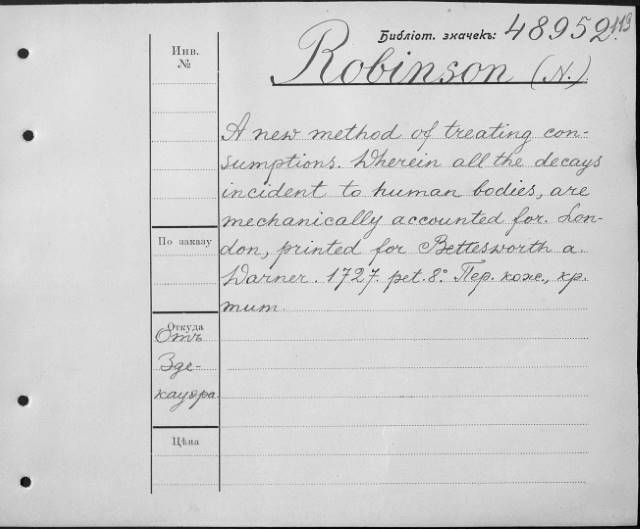 Библіот. значекъ: 48952.113
Robinson (N.)
Инв.
№
A new method of treating con-
sumptions. Wherein all the decays
incident to human bodies, are
mechanically accounted for. Lon-
don, printed for Bettesworth a.
Warner. 1727. pet. 8.° Пер. кож., кр.
тит.
По заказу
Откуда
Отъ
Зде-
кауэра.
Цѣна